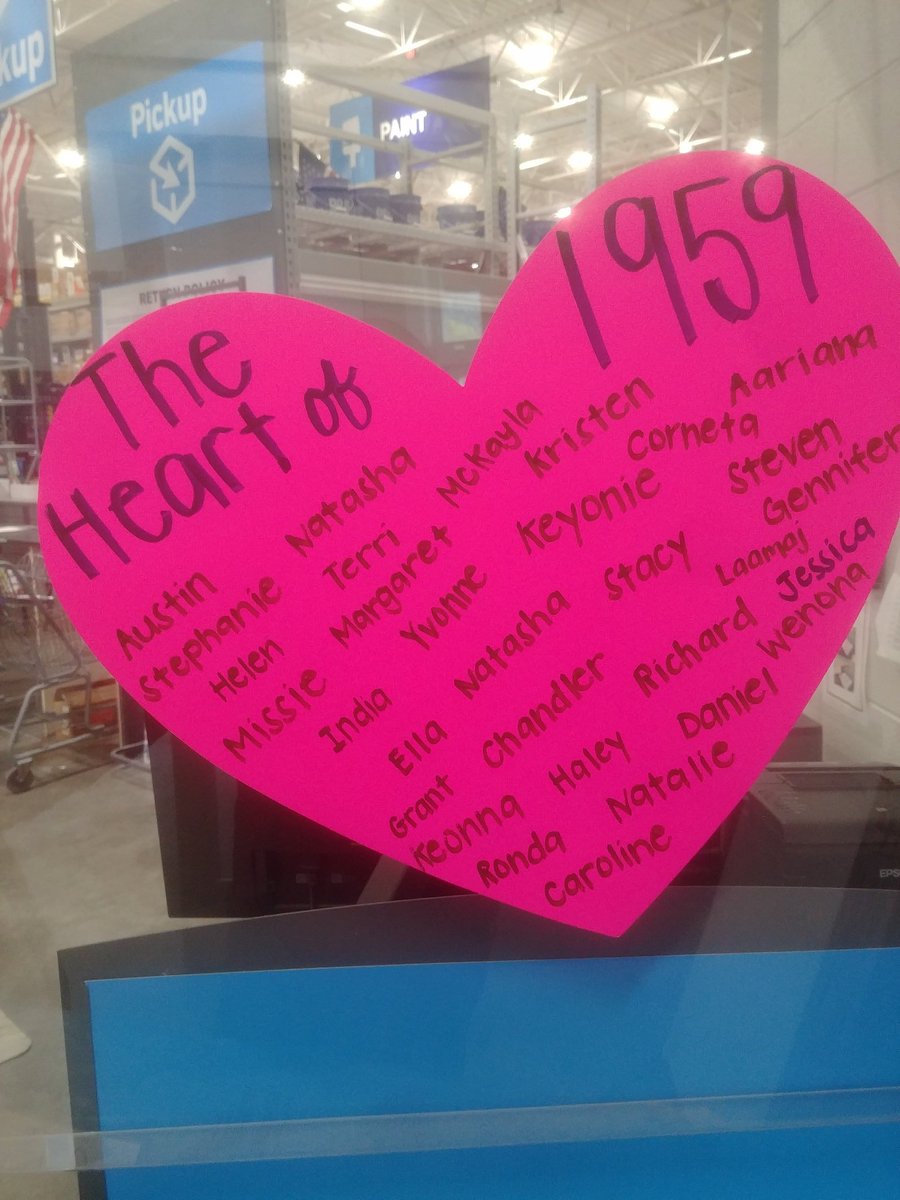 kup
Pickup
PAINT
RETURN POLICY
The
Heart of
1959
Austin Natasha McKayla Kristen Aariana
Stephanie Terri Corneta
Helen Margaret Keyonie Steven
Missie Yvonne Stacy Gennifer
India Natasha Laamaj Jessica
Ella Chandler Richard Wenona
Grant Haley Daniel
Keonna Natalie
Ronda
Caroline
EPS